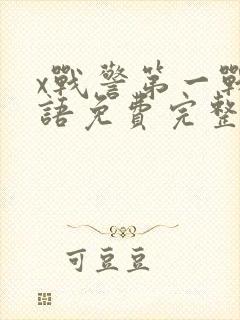 x戰警第一戰
語免費完整
可豆豆